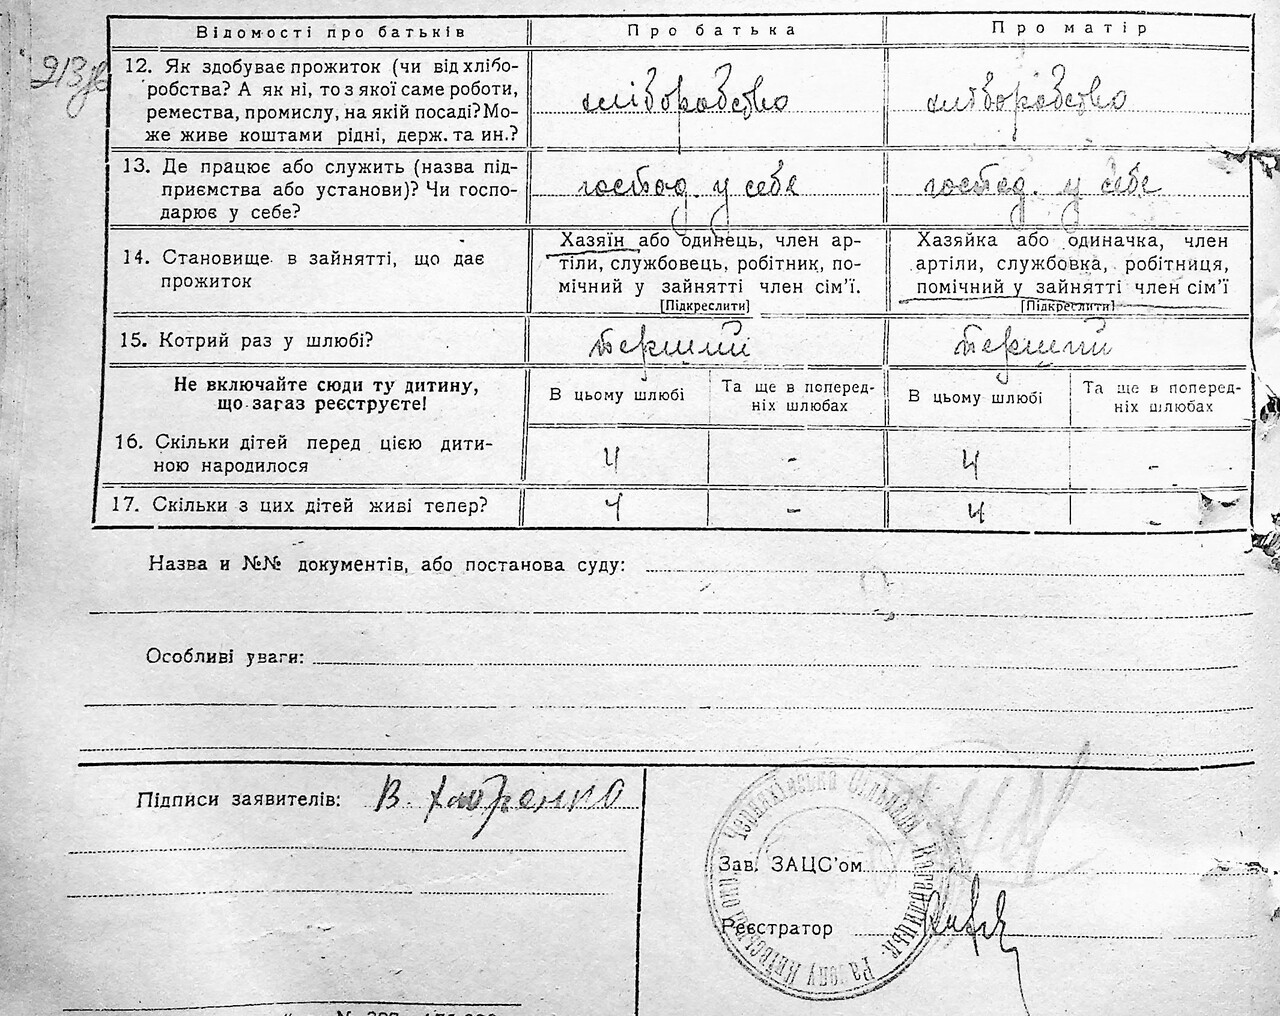 Відомості про батьків Про батька Про матір
213зв
12. Як здобуває прожиток (чи від хлібо-
робства? А як ні, то з якої саме роботи,
ремества, промислу, на якій посаді? Мо-
же живе коштами рідні, держ. та ин.?
хліборобство хліборобство
13. Де працює або служить (назва під-
приємства або установи)? Чи госпо-
дарює у себе?
господ. у себе господ. у себе
14. Становище в зайнятті, що дає
прожиток
Хазяїн або одинець, член ар-
тіли, службовець, робітник, по-
мічний у зайнятті член сім'ї.
[Підкреслити]
Хазяйка або одиначка, член
артіли, службовка, робітниця,
помічний у зайнятті член сім'ї
[Підкреслити]
15. Котрий раз у шлюбі? перший перший
Не включайте сюди ту дитину,
що загаз реєструєте!
В цьому шлюбі Та ще в поперед-
ніх шлюбах
В цьому шлюбі Та ще в поперед-
ніх шлюбах
16. Скільки дітей перед цією дити-
ною народилося
4 - 4 -
17. Скільки з цих дітей живі тепер? 4 - 4 -
Назва и №№ документів, або постанова суду:
Особливі уваги:
Підписи заявителів: В.
Зав. ЗАЦС'ом
Реєстратор
Сільська Рада Кагарлицьк. Району